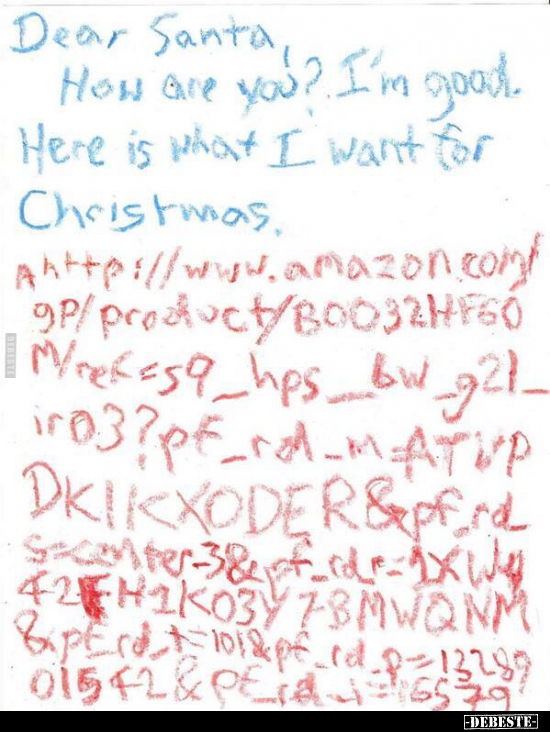 Dear Santa,
How are you? I'm good.
Here is what I want for
Christmas.
A http://www.amazon.com/
gp/product/B0032HF60
M/ref=s9_hps_bw_g21_
ir03?pf_rd_m=ATVP
DKIKX0DER&pf_rd_
s=center-3&pf_rd_r=1XWY
42FH1K03Y7BMWQNM
&pf_rd_t=101&pf_rd_p=13289
01542&pf_rd_i=16579
DEBESTE
-DEBESTE-